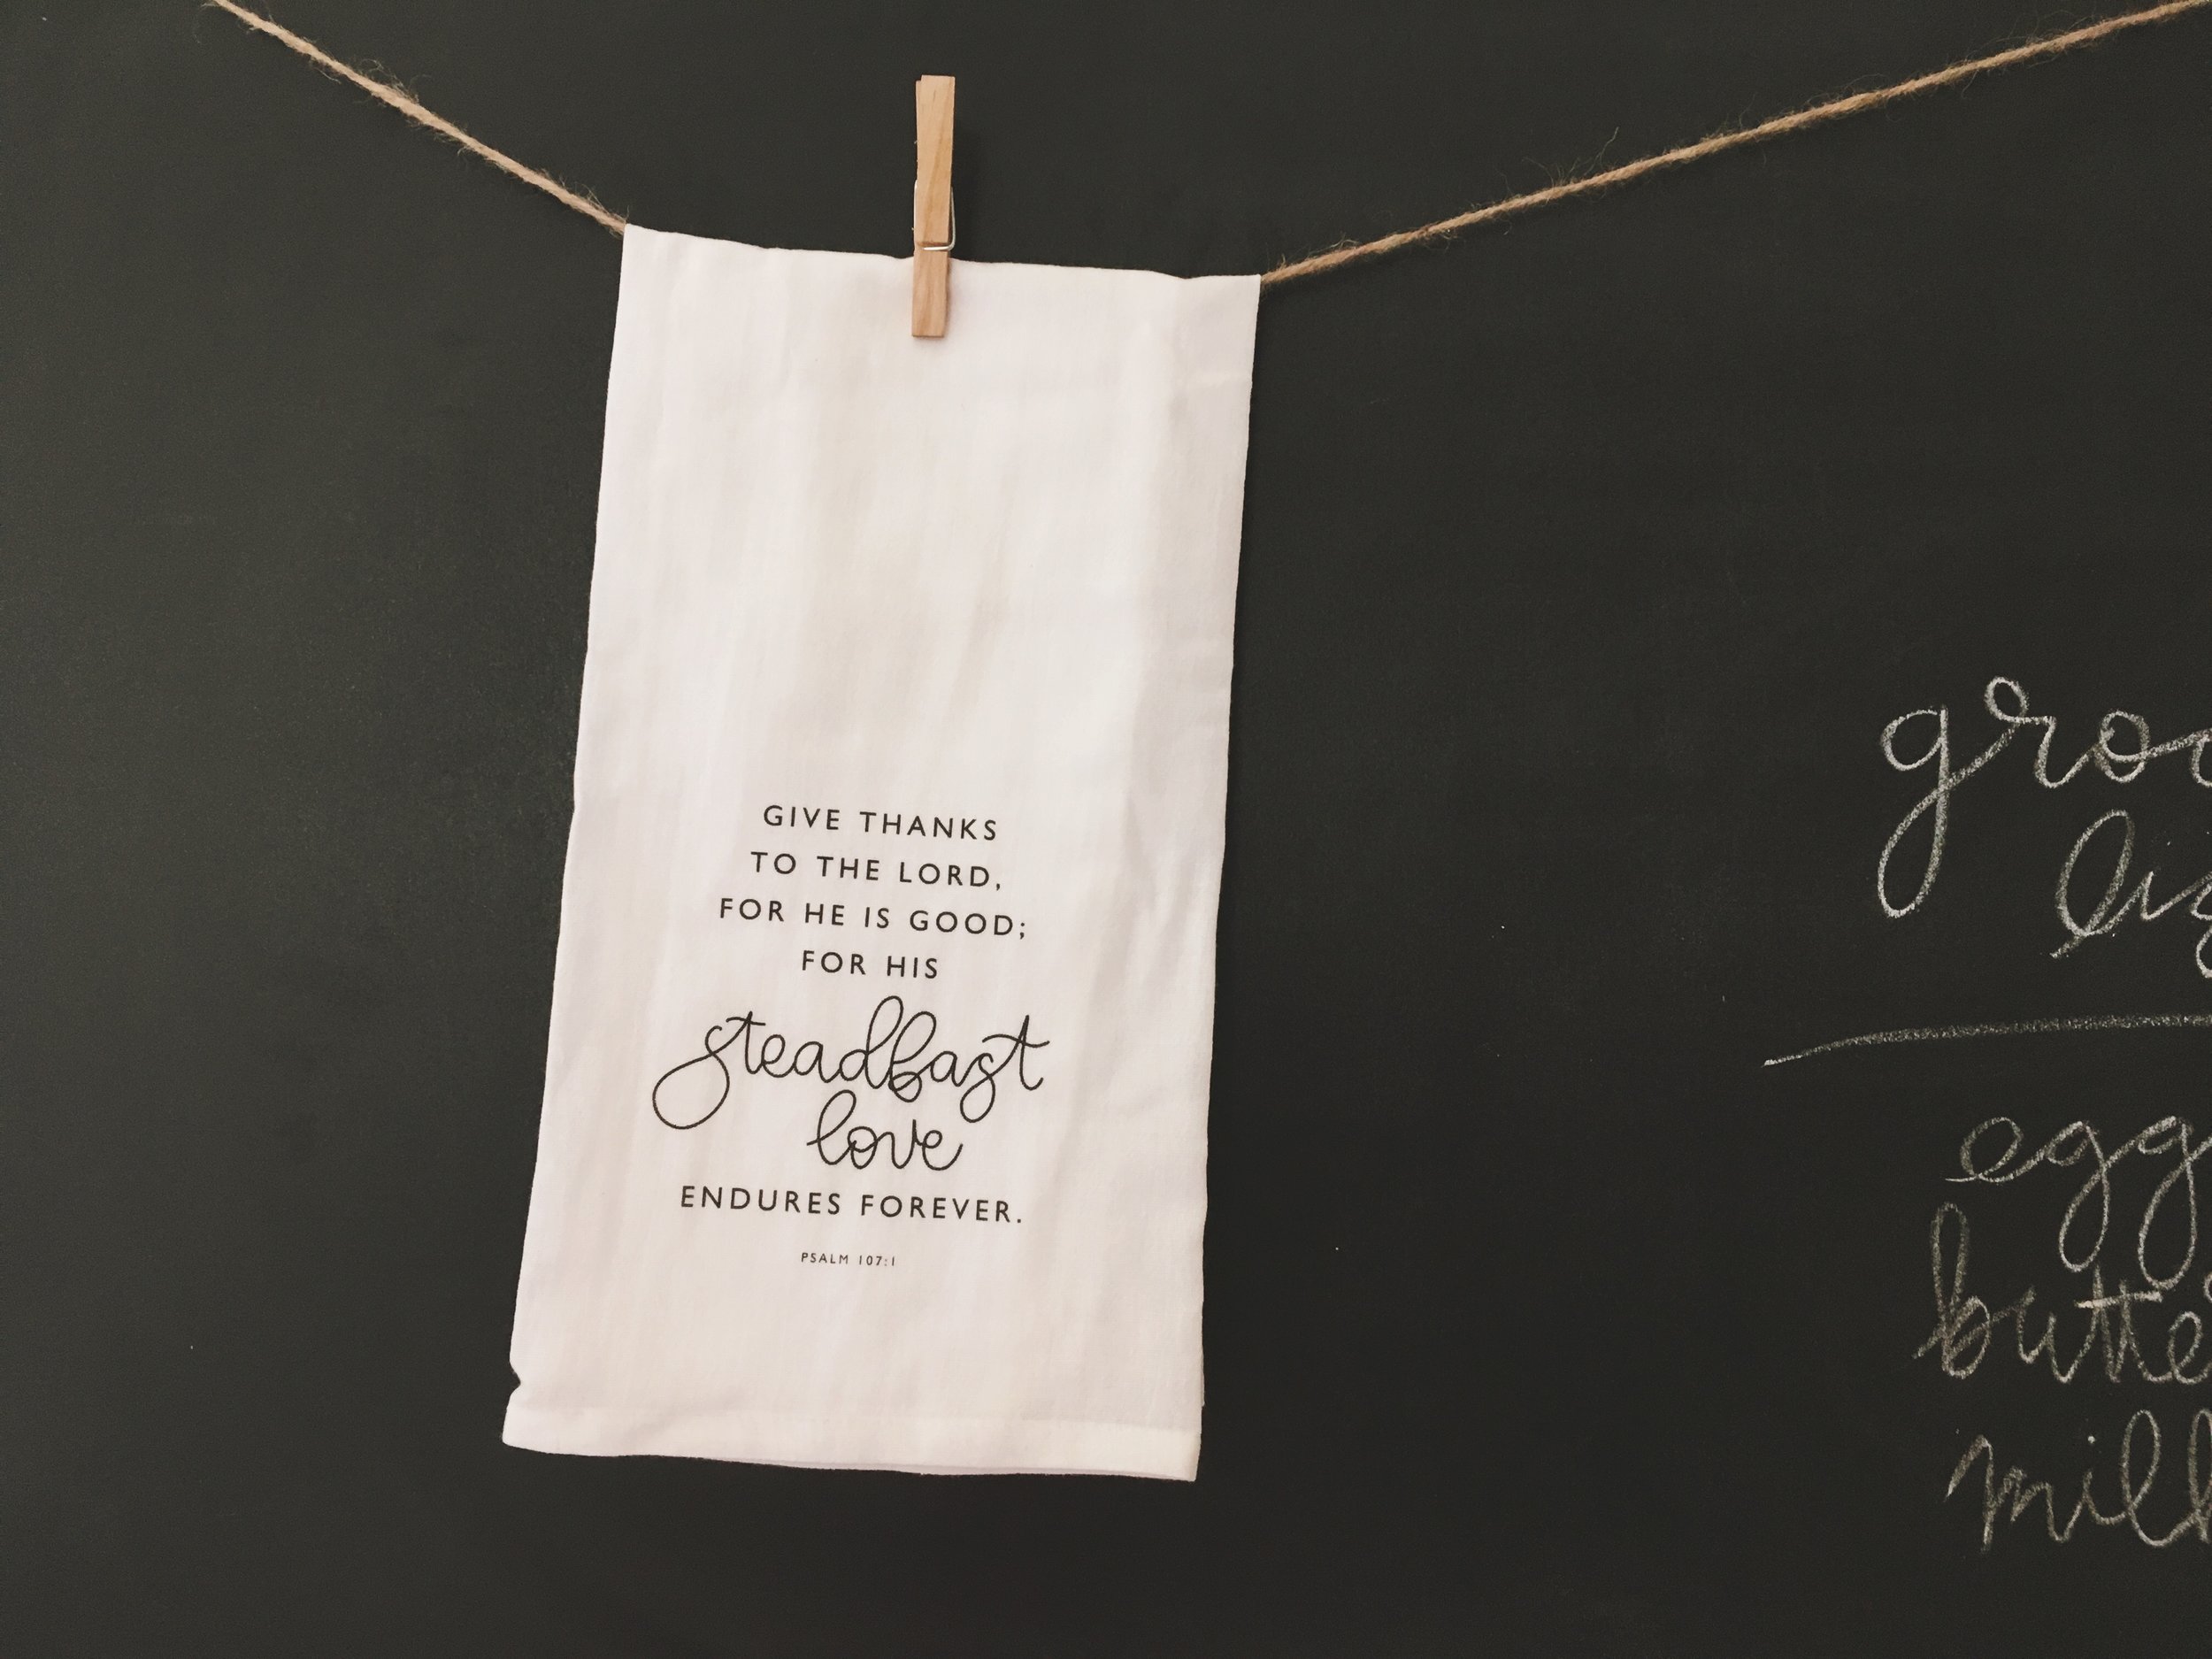 GIVE THANKS
TO THE LORD,
FOR HE IS GOOD;
FOR HIS
steadfast
love
ENDURES FOREVER.
PSALM 107:1
egg
butte
mil